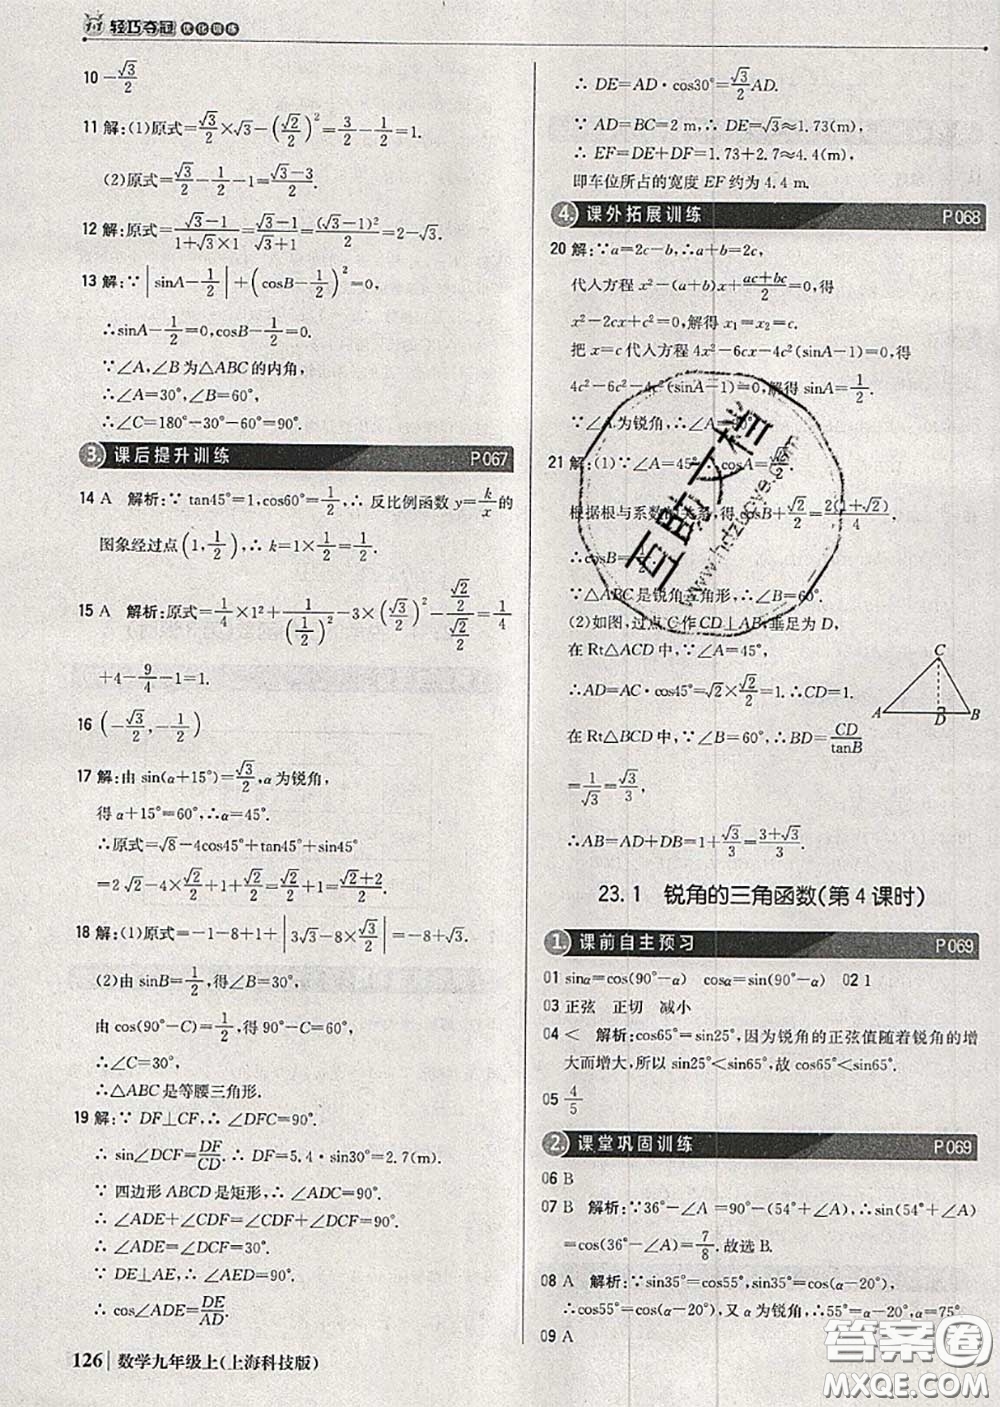 轻巧夺冠 优化训练
10 -√3/2
11 解:(1)原式=√3/2×√3-(√2/2)²=3/2-1/2=1.
(2)原式=√3/2-1/2-1=(√3-3)/2.
12 解:原式=(√3-1)/(1+√3×1)=(√3-1)/(√3+1)=(√3-1)²/2=2-√3.
13 解:∵|sinA-1/2|+(cosB-1/2)²=0,
∴sinA-1/2=0,cosB-1/2=0.
∵∠A,∠B为△ABC的内角,
∴∠A=30°,∠B=60°,
∴∠C=180°-30°-60°=90°.
3. 课后提升训练 P067
14 A 解析:∵tan45°=1,cos60°=1/2,∴反比例函数y=k/x的
图象经过点(1,1/2),∴k=1×1/2=1/2.
15 A 解析:原式=1/4×1²+1/(1/2)²-3×(√3/2)²-(√2/2)/(√2/2)=1/4
+4-9/4-1=1.
16 (-√3/2,-1/2)
17 解:由sin(α+15°)=√3/2,α为锐角,
得α+15°=60°,∴α=45°.
∴原式=√8-4cos45°+tan45°+sin45°
=2√2-4×√2/2+1+√2/2=√2/2+1=(√2+2)/2.
18 解:(1)原式=-1-8+1+|3√3-8×√3/2|=-8+√3.
(2)由sinB=1/2,得∠B=30°,
由cos(90°-C)=1/2,得90°-∠C=60°.
∴∠C=30°,
∴△ABC是等腰三角形.
19 解:∵DF⊥CF,∴∠DFC=90°.
∴sin∠DCF=DF/CD.
∴DF=CD·sin∠DCF=5.4·sin30°=2.7(m).
∵四边形ABCD是矩形,∴∠ADC=90°.
∴∠ADE+∠CDF=∠CDF+∠DCF=90°.
∴∠ADE=∠DCF=30°.
∵DE⊥AE,∴∠AED=90°.
∴cos∠ADE=DE/AD.
126 数学九年级上(上海科技版)
∴DE=AD·cos30°=√3/2AD.
∵AD=BC=2 m,∴DE=√3≈1.73(m)
∴EF=DE+DF=1.73+2.7≈4.4(m),
即车位所占的宽度EF约为4.4 m.
4. 课外拓展训练 P068
20 解:∵a=2c-b,∴a+b=2c,
代入方程x²-(a+b)x+(ac+bc)/2=0,得
x²-2cx+c²=0,解得x₁=x₂=c.
把x=c代入方程4x²-6cx-4c²(sinA-1)=0,得
4c²-6c²-4c²(sinA-1)=0,解得sinA=1/2.
∵∠A为锐角,∴∠A=30°.
21 解:(1)∵∠A=45°,∴cosA=√2/2.
根据根与系数的关系,得cosB+√2/2=2(1+√2)/4.
∴cosB=1/2.
∵△ABC是锐角三角形,∴∠B=60°.
(2)如图,过点C作CD⊥AB,垂足为D,
在Rt△ACD中,∵∠A=45°,
∴AD=AC·cos45°=√2×√2/2=1.∴CD=1.
在Rt△BCD中,∵∠B=60°,∴BD=CD/tanB
=1/√3=√3/3.
∴AB=AD+DB=1+√3/3=(3+√3)/3.
C
A D B
23.1 锐角的三角函数(第4课时)
1. 课前自主预习 P069
01 sinα=cos(90°-α) cosα=sin(90°-α) 02 1
03 正弦 正切 减小
04 < 解析:cos65°=sin25°,因为锐角的正弦值随着锐角的增
大而增大,所以sin25°<sin65°,故cos65°<sin65°.
05 4/5
2. 课堂巩固训练 P069
06 B
07 B 解析:∵36°-∠A=90°-(54°+∠A),∴sin(54°+∠A)
=cos(36°-∠A)=7/8.故选B.
08 A 解析:∵sin35°=cos55°,sin35°=cos(α-20°),
∴cos55°=cos(α-20°),又α为锐角,∴55°=α-20°,α=75°
09 A
互助文档
www.hdzuoye.com
答案圈
MXQE.COM